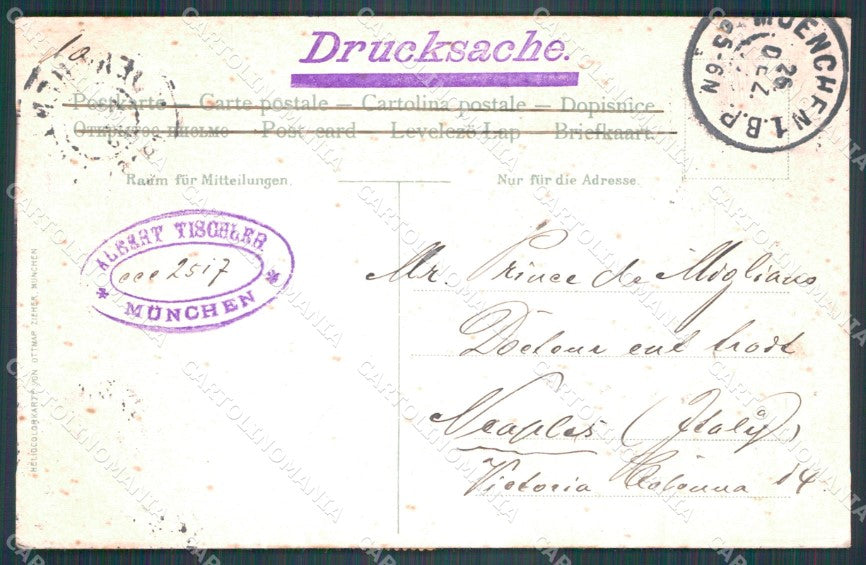 Drucksache.
MUENCHEN 1.B.P.
26 DEZ
5-6N
Postkarte — Carte postale — Cartolina postale — Dopisnice
Post card — Levelező Lap — Briefkaart
Raum für Mitteilungen.
Nur für die Adresse.
ALBERT TISCHLER
ccc 2517
* MÜNCHEN *
Mr. Prince de Migliano
Docteur
Neaples (Italy)
Victoria Colonna 14
HELIOCOLORKARTE VON OTTMAR ZIEHER, MÜNCHEN
CARTOLINOMANIA